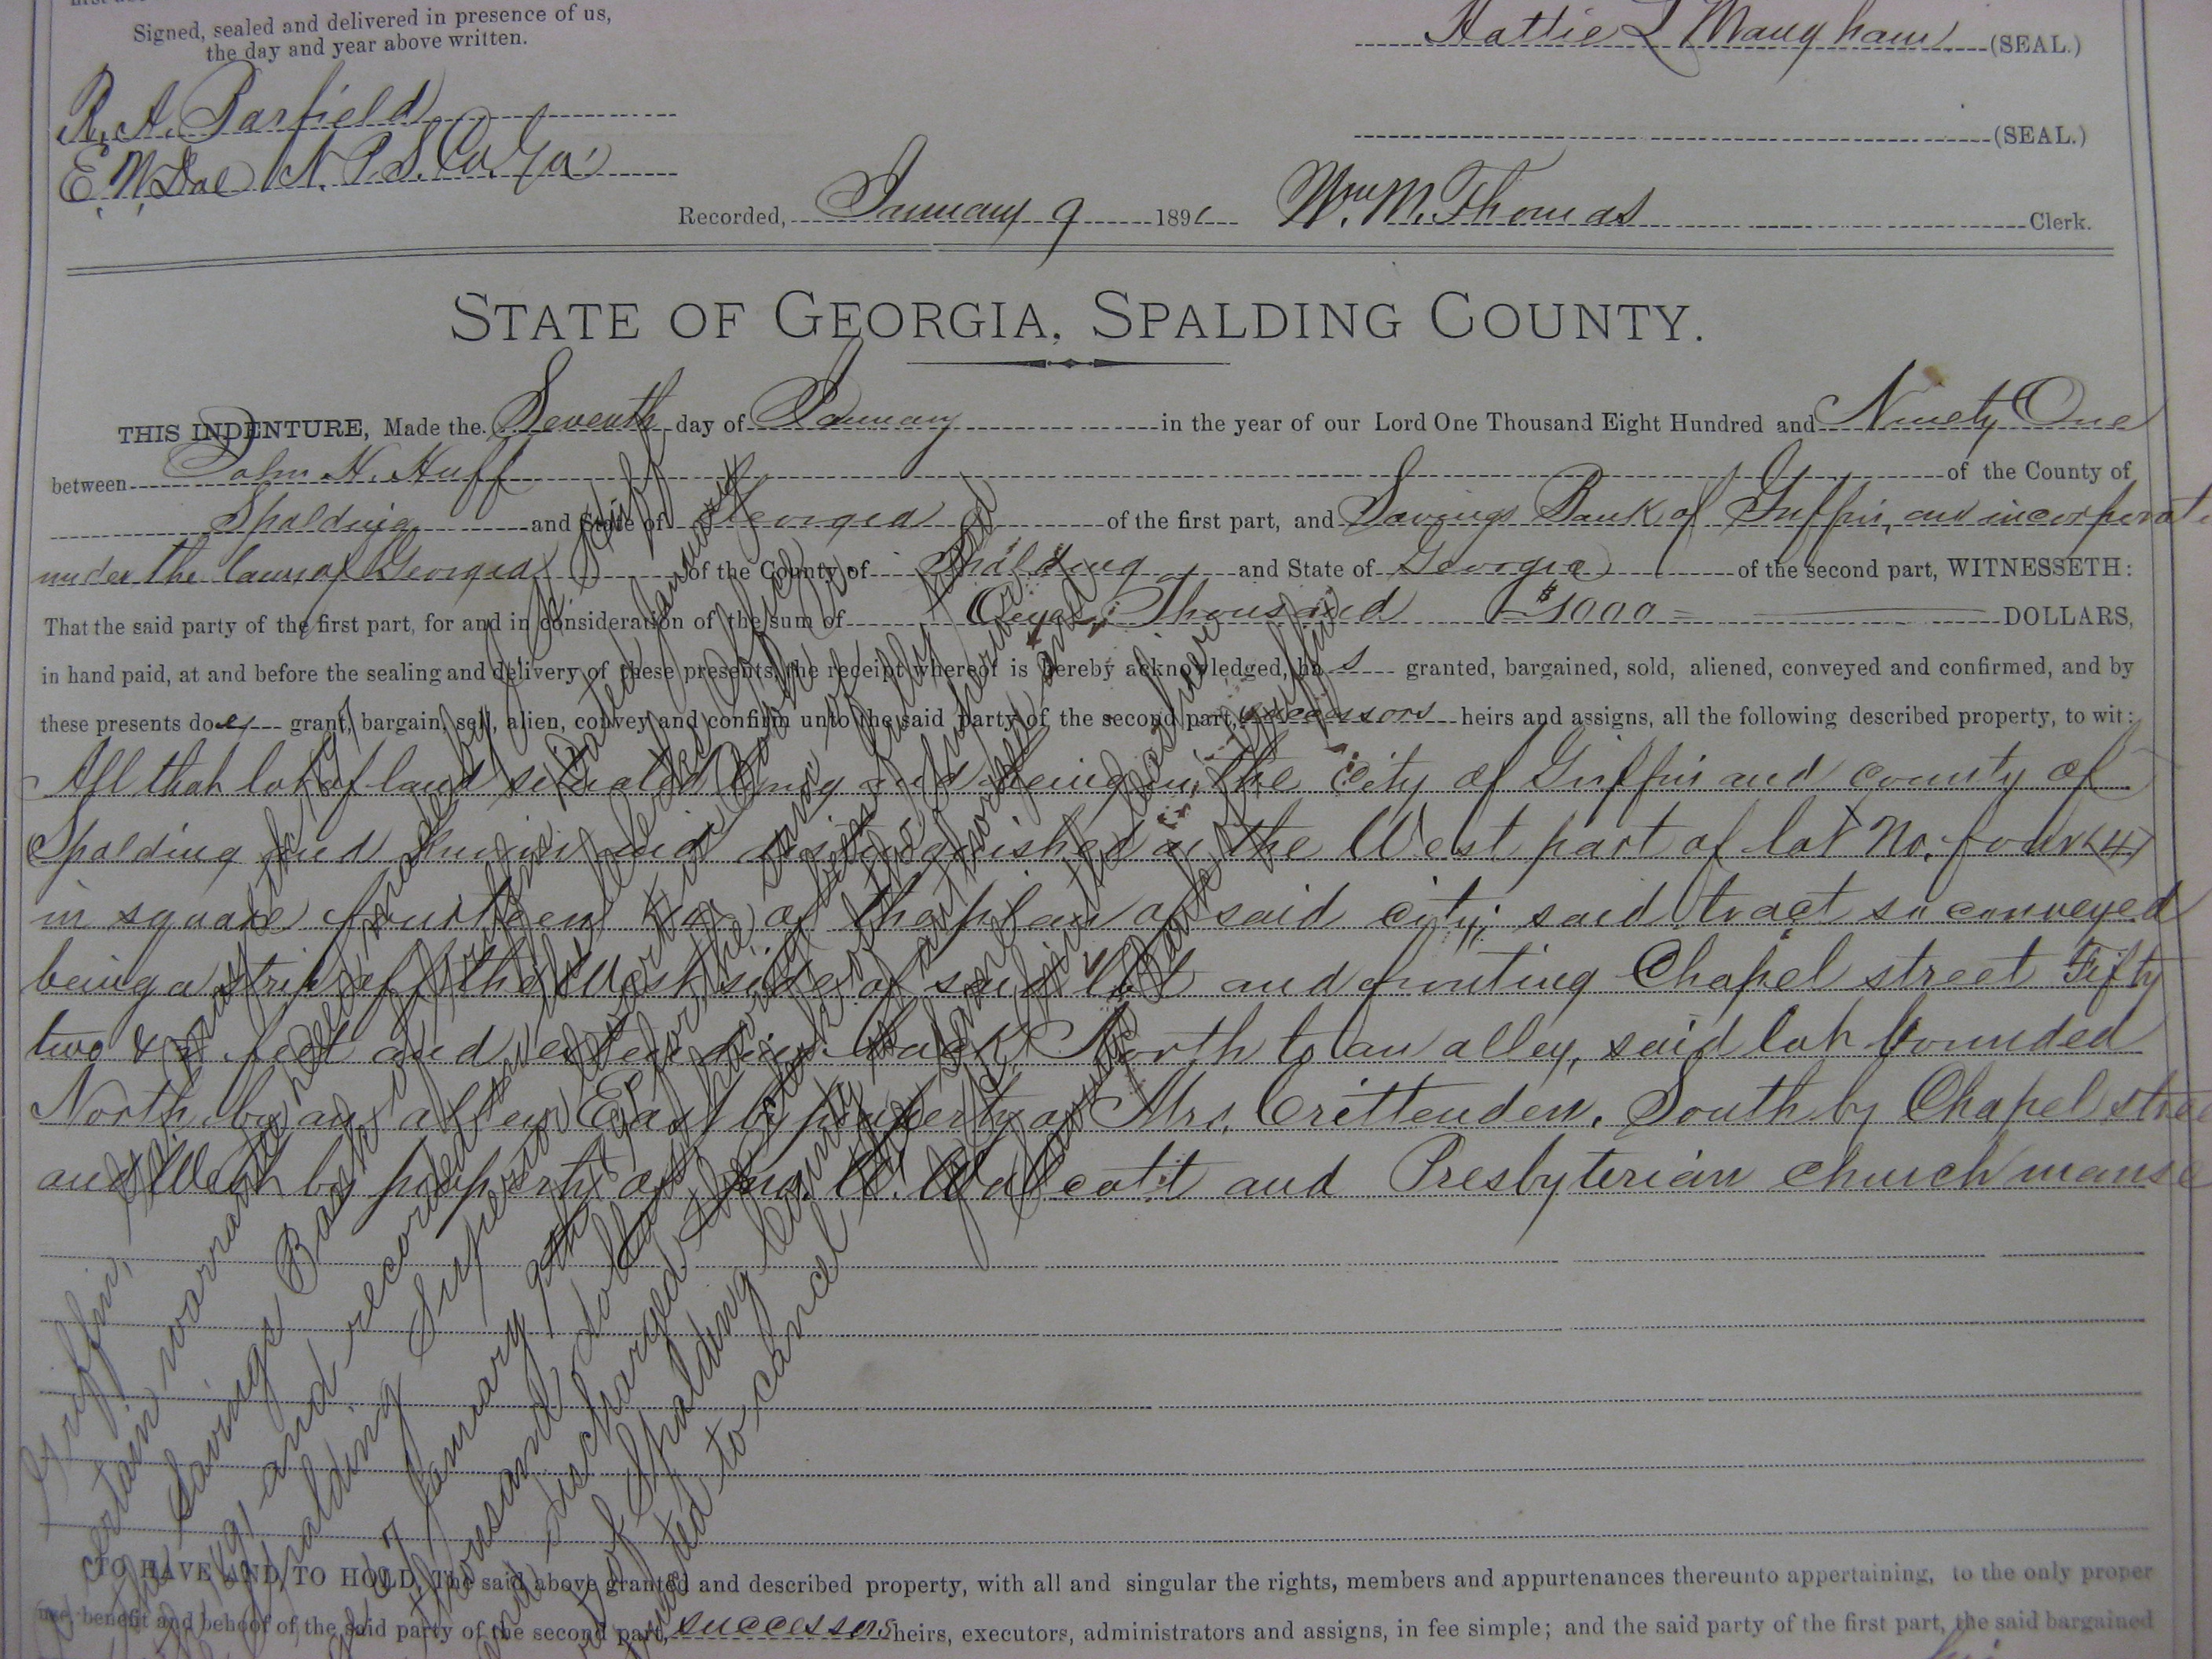 Signed, sealed and delivered in presence of us,
the day and year above written.
Hattie L Maugham (SEAL.)
R. A. Barfield
(SEAL.)
E. W. N. P. S. Co. Ga
Recorded, January 9 1891 Wm. M. Thomas Clerk.
STATE OF GEORGIA, SPALDING COUNTY.
THIS INDENTURE, Made the Seventh day of January in the year of our Lord One Thousand Eight Hundred and Ninety One
between John H. Huff of the County of
Spalding and State of Georgia of the first part, and Savings Bank of Griffin, an incorporate
under the laws of Georgia of the County of Spalding and State of Georgia of the second part, WITNESSETH:
That the said party of the first part, for and in consideration of the sum of Thousand $1000 DOLLARS,
in hand paid, at and before the sealing and delivery of these presents, the receipt whereof is hereby acknowledged, has granted, bargained, sold, aliened, conveyed and confirmed, and by
these presents does grant, bargain, sell, alien, convey and confirm unto the said party of the second part, successors heirs and assigns, all the following described property, to wit:
All that lot of land situated lying and being in the city of Griffin and county of
Spalding and known and distinguished as the West part of lot No. four (4)
in square fourteen of the plan of said city; said tract so conveyed
being a strip off the West side of said lot and fronting Chapel street Fifty
two & feet and extending back North to an alley, said lot bounded
North by an alley East by property of Mrs. Crittenden, South by Chapel stree
and West by property of Jno. W. Walcott and Presbyterian church manse
TO HAVE AND TO HOLD, The said above granted and described property, with all and singular the rights, members and appurtenances thereunto appertaining, to the only proper
use, benefit and behoof of the said party of the second part, successors heirs, executors, administrators and assigns, in fee simple; and the said party of the first part, the said bargained
Griffin,
certain warrantee deed made by
Savings Bank of Griffin dated January
and recorded in the Clerks Office
Spalding Superior Court in Book
January 9th for the sum of
thousand dollars having been fully paid
and discharged the Clerk of the Superior
of Spalding County is authorized and
to cancel the same
Savings Bank of Griffin